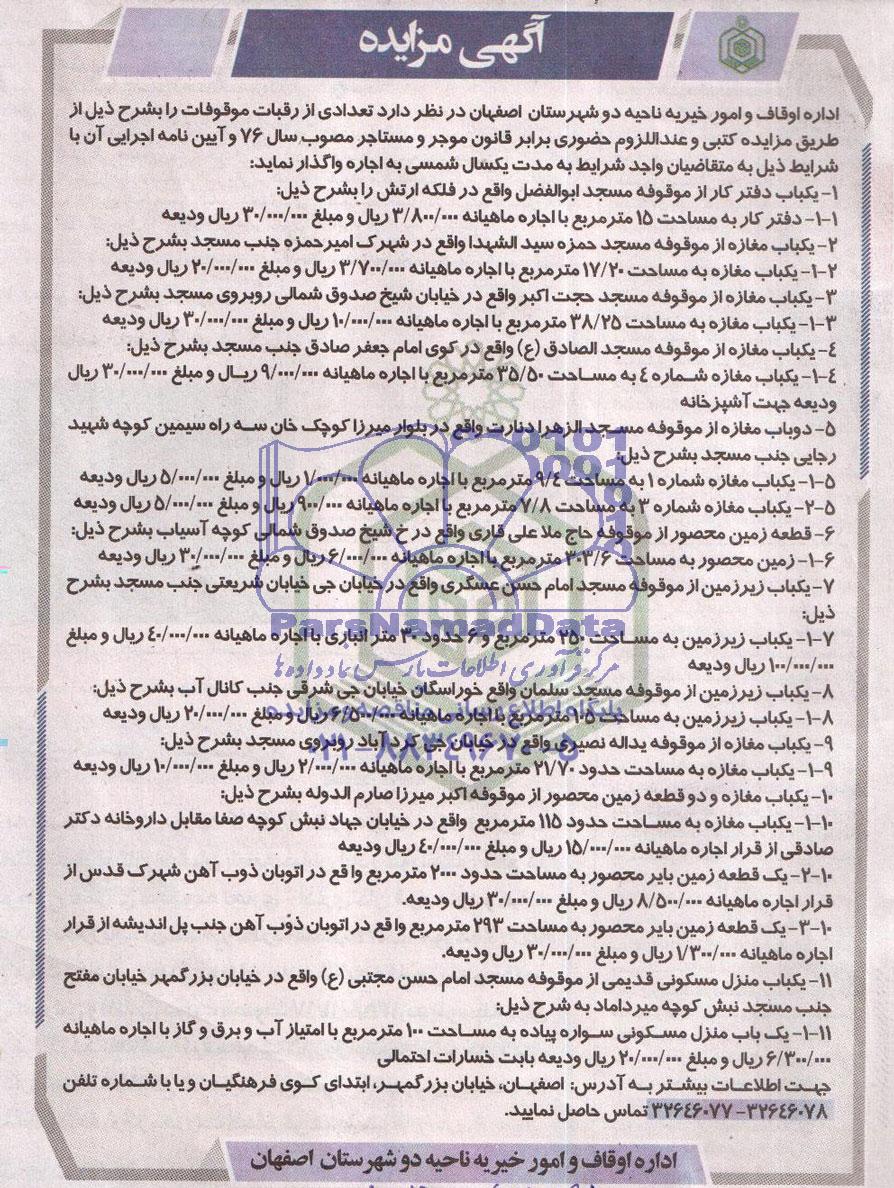 آگهی مزایده
اداره اوقاف و امور خیریه ناحیه دو شهرستان اصفهان در نظر دارد تعدادی از رقبات موقوفات را بشرح ذیل از
طریق مزایده کتبی و عنداللزوم حضوری برابر قانون موجر و مستاجر مصوب سال ۷۶ و آیین نامه اجرایی آن با
شرایط ذیل به متقاضیان واجد شرایط به مدت یکسال شمسی به اجاره واگذار نماید:
۱- یکباب دفتر کار از موقوفه مسجد ابوالفضل واقع در فلکه ارتش را بشرح ذیل:
۱-۱- دفتر کار به مساحت ۱۵ مترمربع با اجاره ماهیانه ۳/۸۰۰/۰۰۰ ریال و مبلغ ۳۰/۰۰۰/۰۰۰ ریال ودیعه
۲- یکباب مغازه از موقوفه مسجد حمزه سید الشهدا واقع در شهرک امیرحمزه جنب مسجد بشرح ذیل:
۱-۲- یکباب مغازه به مساحت ۱۷/۲۰ مترمربع با اجاره ماهیانه ۳/۷۰۰/۰۰۰ ریال و مبلغ ۲۰/۰۰۰/۰۰۰ ریال ودیعه
۳- یکباب مغازه از موقوفه مسجد حجت اکبر واقع در خیابان شیخ صدوق شمالی روبروی مسجد بشرح ذیل:
۱-۳- یکباب مغازه به مساحت ۳۸/۲۵ مترمربع با اجاره ماهیانه ۱۰/۰۰۰/۰۰۰ ریال و مبلغ ۳۰/۰۰۰/۰۰۰ ریال ودیعه
۴- یکباب مغازه از موقوفه مسجد الصادق (ع) واقع در کوی امام جعفر صادق جنب مسجد بشرح ذیل:
۱-۴- یکباب مغازه شماره ۴ به مساحت ۳۵/۵۰ مترمربع با اجاره ماهیانه ۹/۰۰۰/۰۰۰ ریال و مبلغ ۳۰/۰۰۰/۰۰۰ ریال
ودیعه جهت آشپزخانه
۵- دوباب مغازه از موقوفه مسجد الزهرا دنارت واقع در بلوار میرزا کوچک خان سه راه سیمین کوچه شهید
رجایی جنب مسجد بشرح ذیل:
۱-۵- یکباب مغازه شماره ۱ به مساحت ۹/۴ مترمربع با اجاره ماهیانه ۱/۰۰۰/۰۰۰ ریال و مبلغ ۵/۰۰۰/۰۰۰ ریال ودیعه
۲-۵- یکباب مغازه شماره ۳ به مساحت ۷/۸ مترمربع با اجاره ماهیانه ۹۰۰/۰۰۰ ریال و مبلغ ۵/۰۰۰/۰۰۰ ریال ودیعه
۶- قطعه زمین محصور از موقوفه حاج ملا علی قاری واقع در خ شیخ صدوق شمالی کوچه آسیاب بشرح ذیل:
۱-۶- زمین محصور به مساحت ۳۰۳/۶ مترمربع با اجاره ماهیانه ۶/۰۰۰/۰۰۰ ریال و مبلغ ۳۰/۰۰۰/۰۰۰ ریال ودیعه
۷- یکباب زیرزمین از موقوفه مسجد امام حسن عسگری واقع در خیابان جی خیابان شریعتی جنب مسجد بشرح
ذیل:
۱-۷- یکباب زیرزمین به مساحت ۲۵۰ مترمربع و ۶ حدود ۳۰ متر انباری با اجاره ماهیانه ۴۰/۰۰۰/۰۰۰ ریال و مبلغ
۱۰۰/۰۰۰/۰۰۰ ریال ودیعه
۸- یکباب زیرزمین از موقوفه مسجد سلمان واقع خوراسگان خیابان جی شرقی جنب کانال آب بشرح ذیل:
۱-۸- یکباب زیرزمین به مساحت ۱۰۵ مترمربع با اجاره ماهیانه ۶/۵۰۰/۰۰۰ ریال و مبلغ ۲۰/۰۰۰/۰۰۰ ریال ودیعه
۹- یکباب مغازه از موقوفه یداله نصیری واقع در خیابان جی کرد آباد روبروی مسجد بشرح ذیل:
۱-۹- یکباب مغازه به مساحت حدود ۲۱/۷۰ مترمربع با اجاره ماهیانه ۲/۰۰۰/۰۰۰ ریال و مبلغ ۱۰/۰۰۰/۰۰۰ ریال ودیعه
۱۰- یکباب مغازه و دو قطعه زمین محصور از موقوفه اکبر میرزا صارم الدوله بشرح ذیل:
۱-۱۰- یکباب مغازه به مساحت حدود ۱۱۵ مترمربع واقع در خیابان جهاد نبش کوچه صفا مقابل داروخانه دکتر
صادقی از قرار اجاره ماهیانه ۱۵/۰۰۰/۰۰۰ ریال و مبلغ ۴۰/۰۰۰/۰۰۰ ریال ودیعه
۲-۱۰- یک قطعه زمین بایر محصور به مساحت حدود ۲۰۰۰ مترمربع واقع در اتوبان ذوب آهن شهرک قدس از
قرار اجاره ماهیانه ۸/۵۰۰/۰۰۰ ریال و مبلغ ۳۰/۰۰۰/۰۰۰ ریال ودیعه.
۳-۱۰- یک قطعه زمین بایر محصور به مساحت ۲۹۳ مترمربع واقع در اتوبان ذوب آهن جنب پل اندیشه از قرار
اجاره ماهیانه ۱/۳۰۰/۰۰۰ ریال و مبلغ ۳۰/۰۰۰/۰۰۰ ریال ودیعه.
۱۱- یکباب منزل مسکونی قدیمی از موقوفه مسجد امام حسن مجتبی (ع) واقع در خیابان بزرگمهر خیابان مفتح
جنب مسجد نبش کوچه میرداماد به شرح ذیل:
۱-۱۱- یک باب منزل مسکونی سواره پیاده به مساحت ۱۰۰ مترمربع با امتیاز آب و برق و گاز با اجاره ماهیانه
۶/۳۰۰/۰۰۰ ریال و مبلغ ۲۰/۰۰۰/۰۰۰ ریال ودیعه بابت خسارات احتمالی
جهت اطلاعات بیشتر به آدرس: اصفهان، خیابان بزرگمهر، ابتدای کوی فرهنگیان و یا با شماره تلفن
۳۲۶۴۶۰۷۸-۳۲۶۴۶۰۷۷ تماس حاصل نمایید.
اداره اوقاف و امور خیریه ناحیه دو شهرستان اصفهان
ParsNamadData
مرکز فرآوری اطلاعات پارس نماد داده ها
پایگاه اطلاع رسانی مناقصه و مزایده
۰۲۱-۸۸۳۴۹۶۷۰-۵